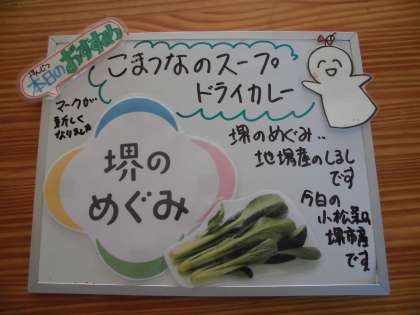 本日のおすすめ
こまつなのスープ
ドライカレー
マークが
新しく
なりました
堺の
めぐみ
堺のめぐみ‥
地場産のしるし
です
今日の
小松菜は
堺市産
です